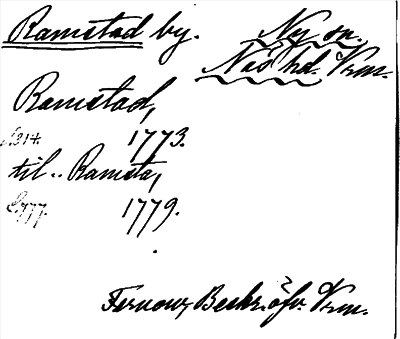 Ramstad by. Ny sn.
Näs hd. Vrm.
Ramstad,
s. 314. 1773.
til.. Ramsta,
S. 777. 1779.
Fernow, Beskr. öfv. Vrm.